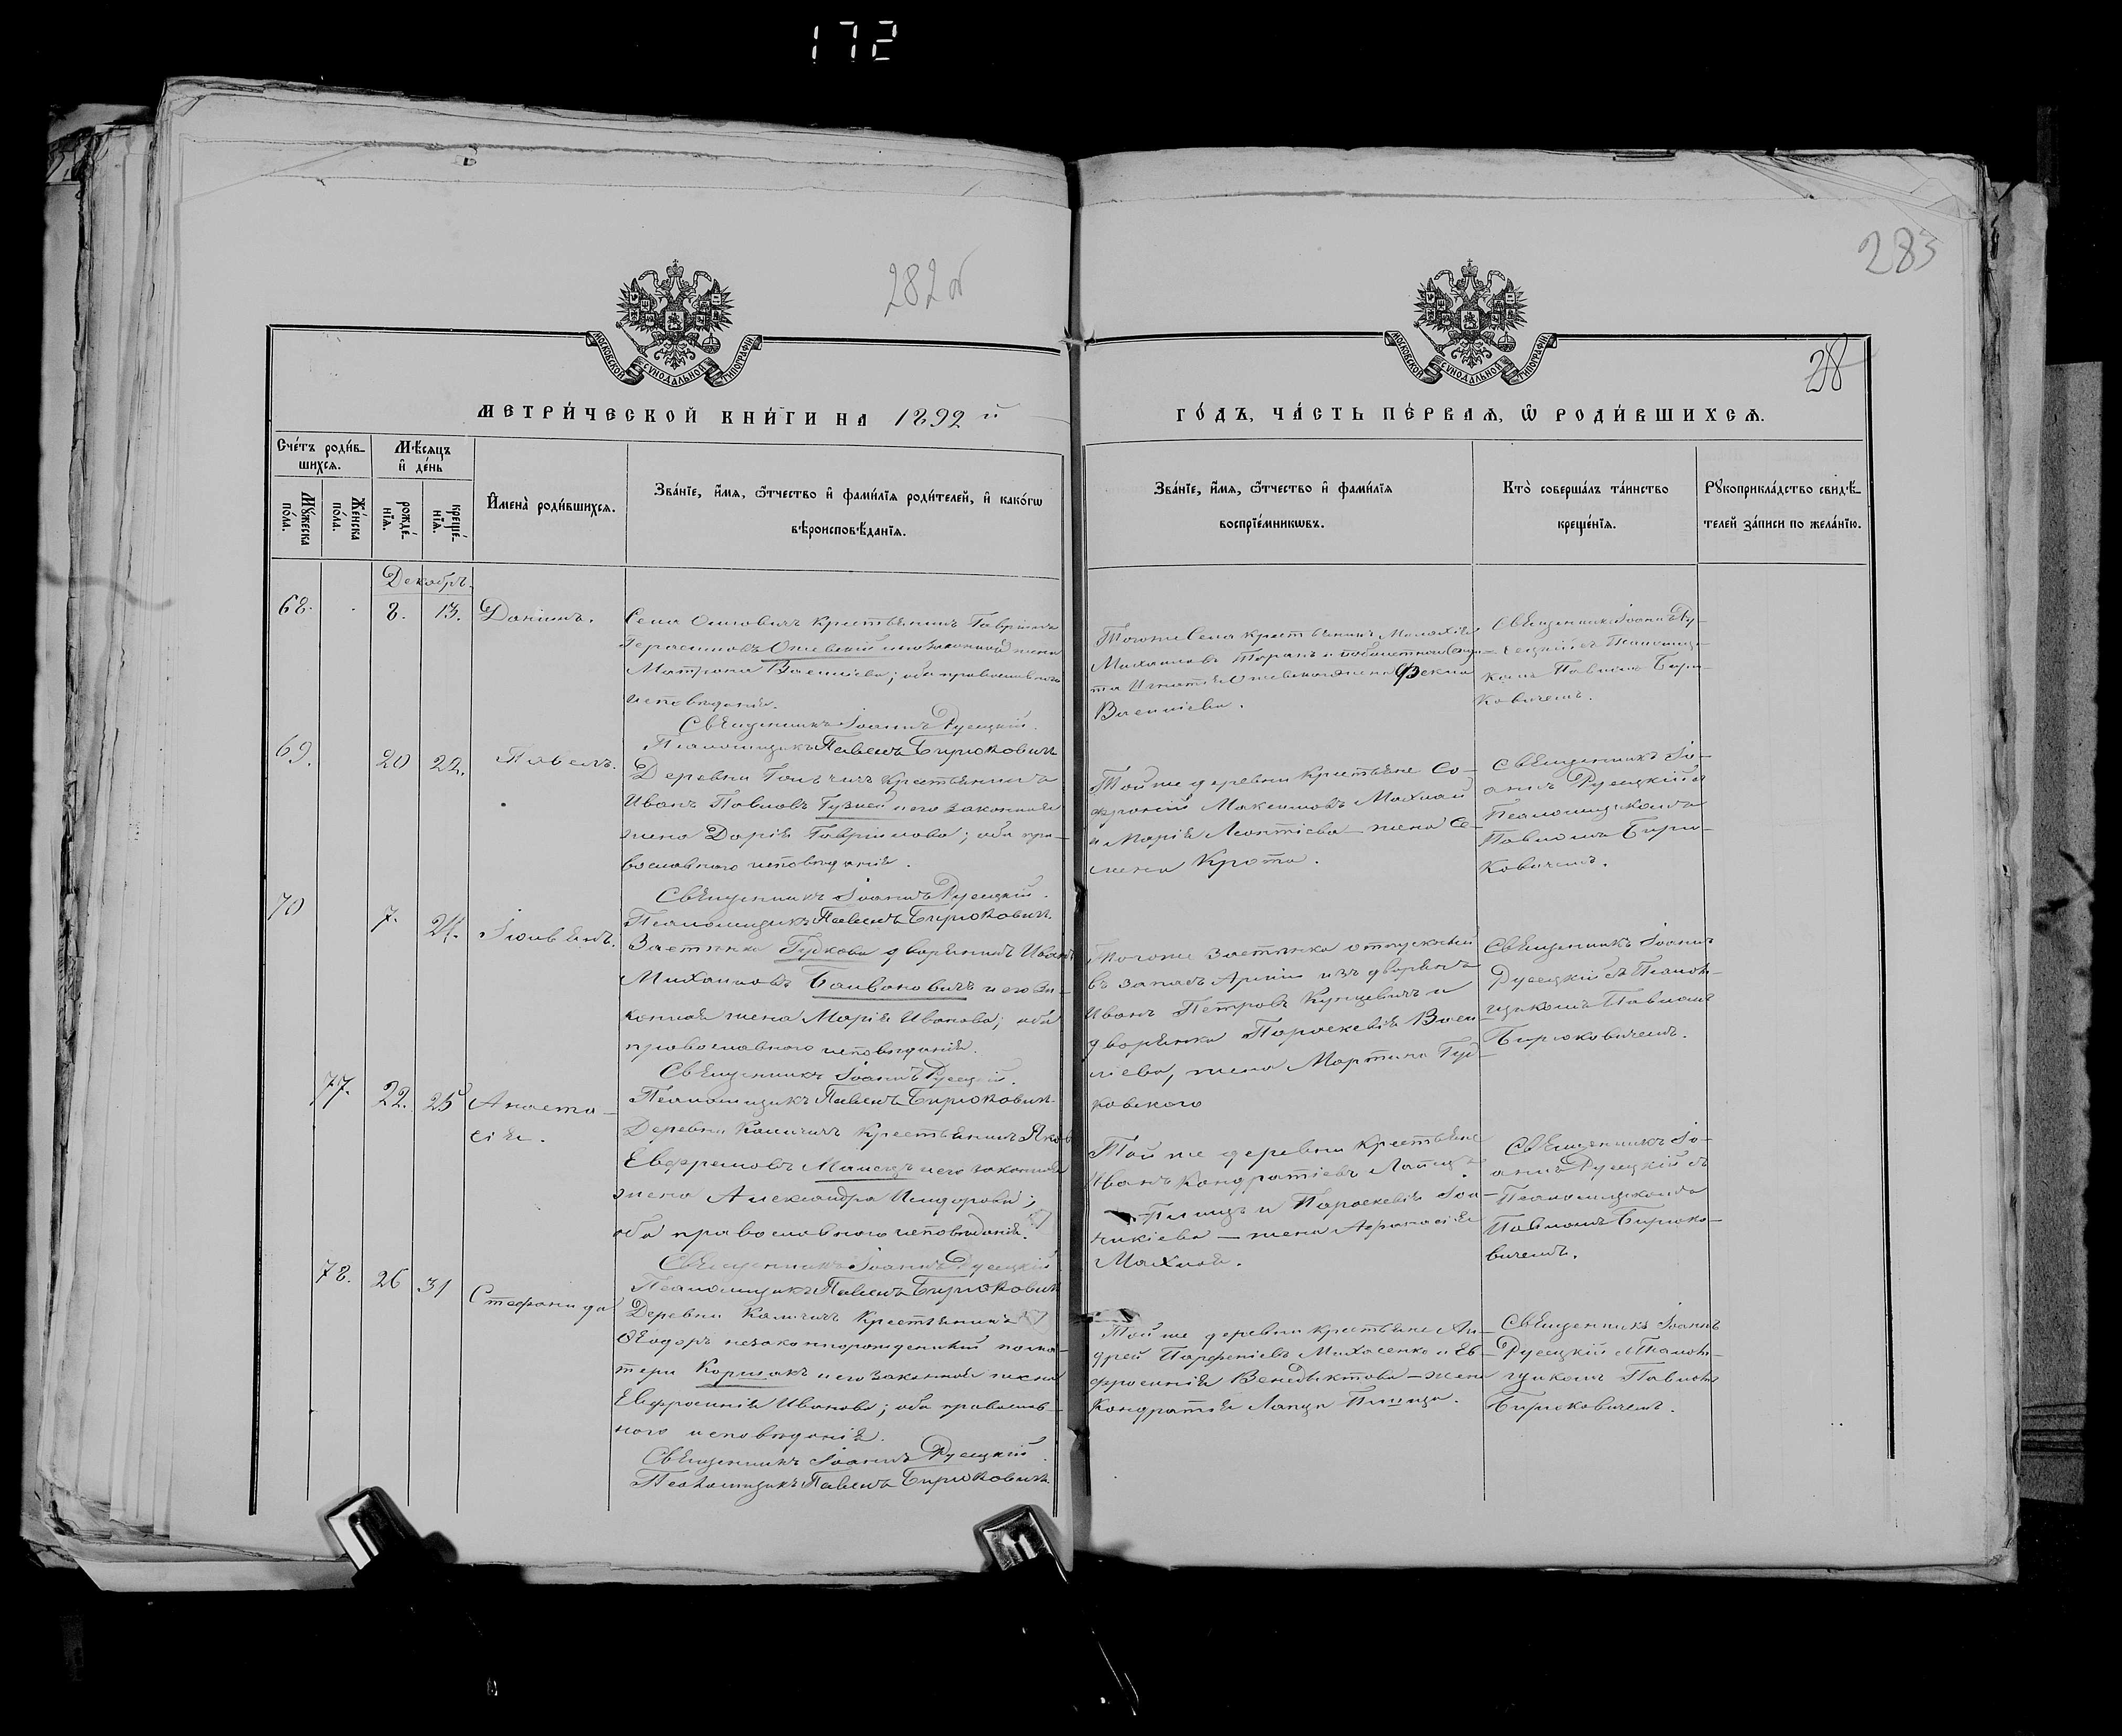 172
282 об
283
28
МОСКОВСКОЙ СѴНОДАЛЬНОЙ ТИПОГРАФІИ
МОСКОВСКОЙ СѴНОДАЛЬНОЙ ТИПОГРАФІИ
МЕТРИ́ЧЕСКОЙ КНИ́ГИ НА 1892 й
ГО́ДЪ, ЧА́СТЬ ПЕ́РВАѦ, Ѡ РОДИ́ВШИХСѦ.
Сче́тъ роди́в-
шихсѧ.
Мꙋ́жеска по́ла.
Же́нска по́ла.
Мѣ́сѧцъ
и҆ де́нь
рожде́-нїѧ.
креще́-нїѧ.
И҆мена̀ роди́вшихсѧ.
Зва́нїе, и҆́мѧ, ѻ҆́тчество и҆ фами́лїѧ роди́телей, и҆ како́гѡ
вѣроисповѣ́данїѧ.
Зва́нїе, и҆́мѧ, ѻ҆́тчество и҆ фами́лїѧ
воспрїе́мникѡвъ.
Кто̀ соверша́лъ та́инство
креще́нїѧ.
Рꙋкоприкла́дство свидѣ́-
телей за́писи по жела́нїю.
Декабрь.
68. 8. 13. Даніилъ.
Села Оттовичъ крестьянинъ Гавріилъ
Герасимовъ и его законная жена
Матрона Василіева; оба православнаго
исповѣданія.
Священникъ Іоаннъ Русецкій.
Псаломщикъ Павелъ Бирюковичъ
Тогоже Села крестьянинъ
Михаиловъ
жена Фекла
Василіева.
Священникъ Іоаннъ Ру-
сецкій съ Псаломщи-
комъ Павломъ Бирю-
ковичемъ.
69. 20 22. Павелъ.
Деревни крестьянинъ
Иванъ Павловъ и его законная
жена Дарія Гавріилова; оба пра-
вославного исповѣданія.
Священникъ Іоаннъ Русецкій.
Псаломщикъ Павелъ Бирюковичъ.
Той же деревни крестьяне Со-
фроній Максимовъ Махнай
и Марія Леонтіева жена Се-
мена Крота.
Священникъ Іо-
аннъ Русецкій съ
Псаломщикомъ
Павломъ Бирю-
ковичемъ.
70 7. 24.
Застѣнка Гудкова дворянинъ Иванъ
Михаиловъ Баивановичъ и его за-
конная жена Марія Иванова; оба
православного исповѣданія.
Священникъ Іоаннъ Русецкій.
Псаломщикъ Павелъ Бирюковичъ
Тогоже Застѣнка отпускный
въ запасъ Арміи изъ дворянъ
Иванъ Петровъ Кунцевичъ и
дворянка Параскевія Васи-
ліева, жена Мартина Гуд-
ковского
Священникъ Іоаннъ
Русецкій съ Псалом-
щикомъ Павломъ
Бирюковичемъ.
77. 22. 25 Анаста-
сія.
Деревни Каличичъ крестьянинъ Яковъ
Евфремовъ и его законная
жена Александра Исидорова;
оба православного исповѣданія.
Священникъ Іоаннъ Русецкій
Псаломщикъ Павелъ Бирюковичъ
Той же деревни крестьяне
Иванъ Кондратіевъ
и Параскевія Іоа-
никіева — жена Афанасія
Махная.
Священникъ Іо-
аннъ Русецкій съ
Псаломщикомъ
Павломъ Бирюко-
вичемъ.
78. 26 31 Стефанида
Деревни Каличичъ крестьянинъ
Ѳеодоръ незаконнорожденный по ма-
тери Коршакъ и его законная жена
Евфросинія Иванова; оба православ-
ного исповѣданія.
Священникъ Іоаннъ Русецкій.
Псаломщикъ Павелъ Бирюковичъ.
Той же деревни крестьяне Ан-
дрей Парфеніевъ Михасенко и Ев-
фросинія Венедиктова — жена
Кондратія
Священникъ Іоаннъ
Русецкій съ Псалом-
щикомъ Павломъ
Бирюковичемъ.